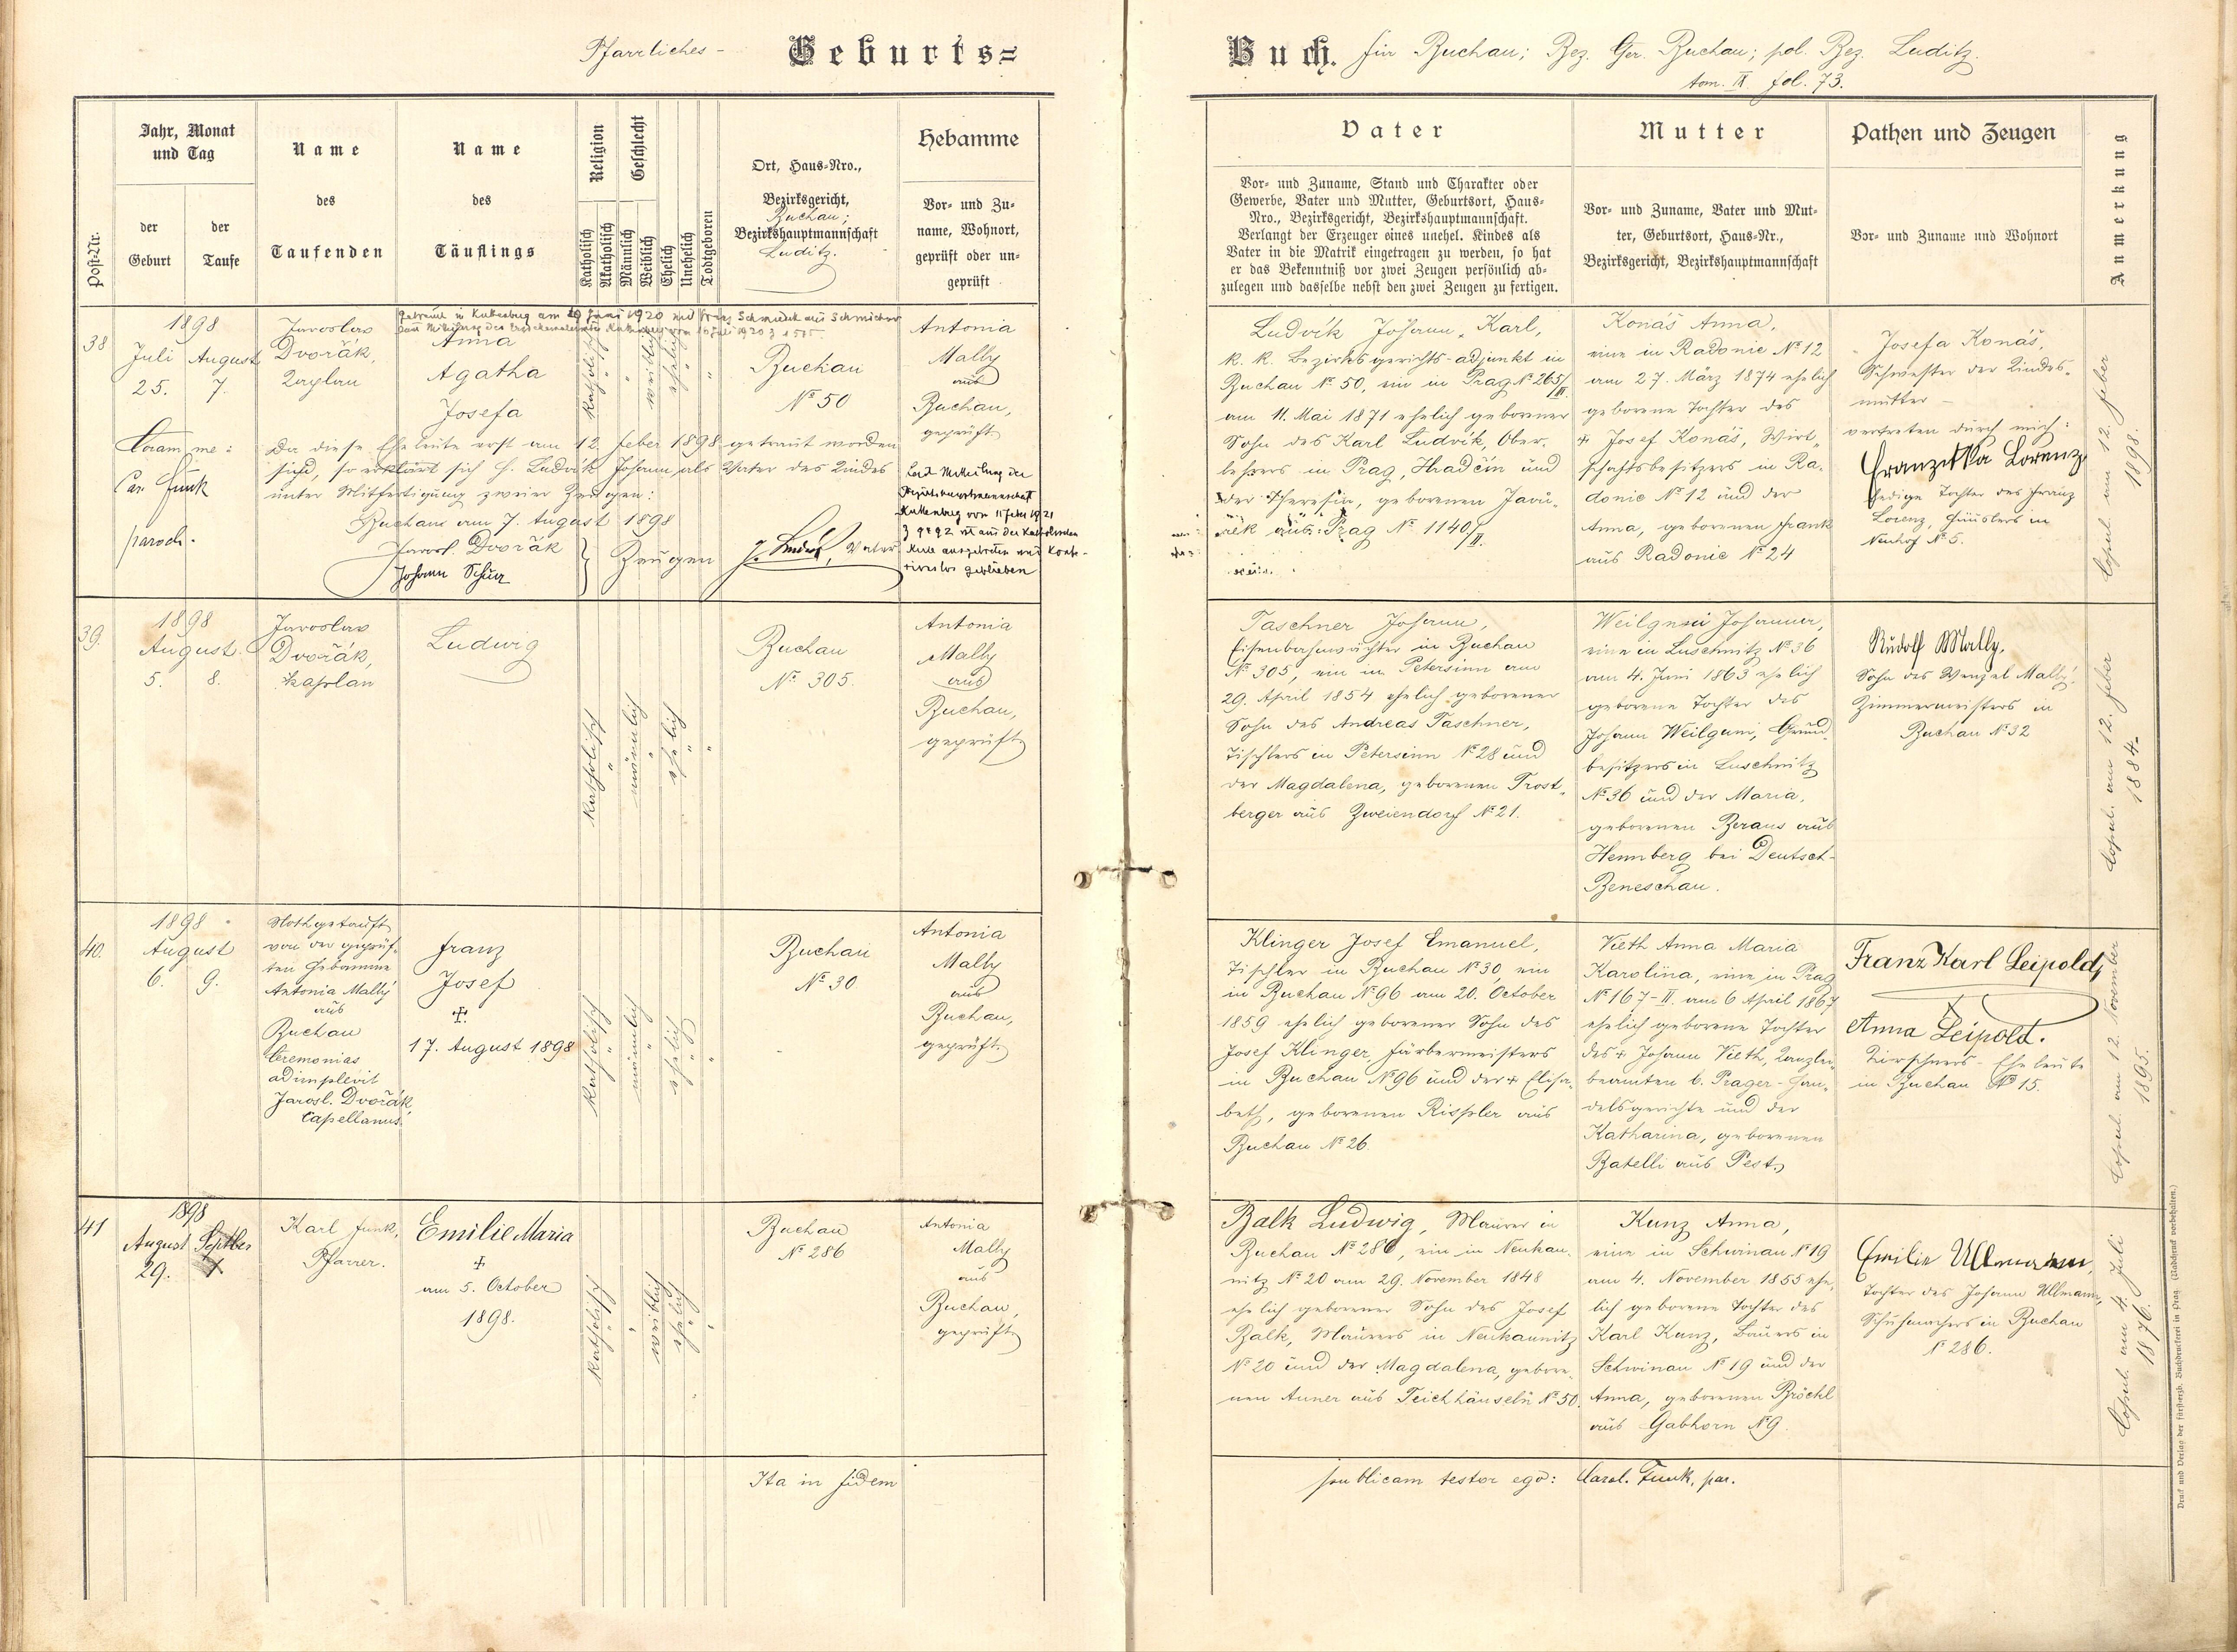 Pfarrliches - Geburts=
Buch. für Buchau; Bez. Ger. Buchau; pol. Bez. Luditz.
tom. IX fol. 73.
Post-Nr.
Jahr, Monat
und Tag
der
Geburt
der
Taufe
Name
des
Taufenden
Name
des
Täuflings
Religion
Katholisch
Akatholisch
Geschlecht
Männlich
Weiblich
Ehelich
Unehelich
Todtgeboren
Ort, Haus-Nro.,
Bezirksgericht,
Buchau;
Bezirkshauptmannschaft
Luditz.
Hebamme
Vor- und Zu-
name, Wohnort,
geprüft oder un-
geprüft
Vater
Vor- und Zuname, Stand und Charakter oder
Gewerbe, Vater und Mutter, Geburtsort, Haus-
Nro., Bezirksgericht, Bezirkshauptmannschaft.
Verlangt der Erzeuger eines unehel. Kindes als
Vater in die Matrik eingetragen zu werden, so hat
er das Bekenntniß vor zwei Zeugen persönlich ab-
zulegen und dasselbe nebst den zwei Zeugen zu fertigen.
Mutter
Vor- und Zuname, Vater und Mut-
ter, Geburtsort, Haus-Nr.,
Bezirksgericht, Bezirkshauptmannschaft
Pathen und Zeugen
Vor- und Zuname und Wohnort
Anmerkung
38
1898
Juli August
25. 7.
Jaroslav
Dvořák,
Kaplan
Getraut in Kuttenberg am 29 Juni 1920 mit Franz Schmuck aus
Anna
Agatha
Josefa
katholisch
"
weiblich
ehelich
"
Buchau
№ 50
Antonia
Mally
aus
Buchau,
geprüft
Coram me:
Car. Funk
paroch.
Da diese Eheleute erst am 12. Feber 1898 getraut worden
sind, so erklärt sich H. Ludvík Johann als Vater des Kindes
unter Mitfertigung zweier Zeugen:
Buchau am 7. August 1898
Jarosl. Dvořák
Johann Schurz
Zeugen
J. Ludvík, Vater
Laut Mitteilung der
Bezirkshauptmannschaft
Kuttenberg vom 11 Feber 1921
Z 9892 ist aus der katholischen
Kirche ausgetreten und konfes-
sionslos geblieben
Ludvík Johann Karl,
k. k. Bezirksgerichts-adjunkt in
Buchau № 50, ein in Prag № 265/III.
am 11. Mai 1871 ehelich geborener
Sohn des Karl Ludvík, Ober-
lehrers in Prag, Hradčin und
der Theresia, geborenen Javů-
rek aus Prag № 1140/II.
Konáš Anna,
eine in Radonic № 12
am 27. März 1874 ehelich
geborene Tochter des
+ Josef Konáš, Wirt-
schaftsbesitzers in Ra-
donic № 12 und der
Anna, geborenen Frank
aus Radonic № 24
Josefa Konáš,
Schwester der Kindes-
mutter -
vertreten durch mich:
Franziska Lorenz
ledige Tochter des Franz
Lorenz, Häuslers in
Neuhof № 5.
Copul. am 12. Feber
1898.
39.
1898
August.
5. 8.
Jaroslav
Dvořák,
Kaplan
Ludwig
katholisch
"
männlich
"
ehelich
"
Buchau
№ 305.
Antonia
Mally
aus
Buchau,
geprüft
Taschner Johann,
Eisenbahnwächter in Buchau
№ 305, ein in Petersinn am
29. April 1854 ehelich geborener
Sohn des Andreas Taschner,
Tischlers in Petersinn № 28 und
der Magdalena, geborenen Trost-
berger aus Zweiendorf № 21.
Weilguni Johanna,
eine in Luschnitz № 36
am 4. Juni 1863 ehelich
geborene Tochter des
Johann Weilguni, Grund-
besitzers in Luschnitz
№ 36 und der Maria,
geborenen Beraus aus
Hennberg bei Deutsch-
Beneschau.
Rudolf Mally,
Sohn des Wenzel Mally,
Zimmermeisters in
Buchau № 32
Copul. am 12. Feber
1884.
40.
1898
August
6. 9.
Nothgetauft
von der geprüf-
ten Hebamme
Antonia Mally
aus
Buchau
Ceremonias
adimplevit
Jarosl. Dvořák,
Capellanus.
Franz
Josef
+
17. August 1898
katholisch
"
männlich
"
ehelich
"
Buchau
№ 30
Antonia
Mally
aus
Buchau,
geprüft.
Klinger Josef Emanuel,
Tischler in Buchau № 30, ein
in Buchau № 96 am 20. October
1859 ehelich geborener Sohn des
Josef Klinger, Färbermeisters
in Buchau № 96 und der + Elisa-
beth, geborenen Rissler aus
Buchau № 26.
Vieth Anna Maria
Karolina, eine in Prag
№ 167-II. am 6 April 1867
ehelich geborene Tochter
des + Johann Vieth, Kanzlei-
beamten b. Prager-Han-
delsgerichte und der
Katharina, geborenen
Batelli aus Pest.
Franz Karl Leipold,
Anna Leipold.
Kirschners-Eheleute
in Buchau № 15.
Copul. am 12. November
1895.
41
1898
August Septber
29.
Karl Funk,
Pfarrer.
Emilie Maria
+
am 5. October
1898.
katholisch
"
weiblich
ehelich
"
Buchau
№ 286
Antonia
Mally
aus
Buchau,
geprüft
Balk Ludwig, Maurer in
Buchau № 286, ein in Neukau-
nitz № 20 am 29. November 1848
ehelich geborener Sohn des Josef
Balk, Maurers in Neukaunitz
№ 20 und der Magdalena, gebore-
nen Anner aus Teichhäuseln № 50.
Kunz Anna,
eine in Schwinau № 19
am 4. November 1855 ehe-
lich geborene Tochter des
Karl Kunz, Bauers in
Schwinau № 19 und der
Anna, geborenen Bröckl
aus Gabhorn № 9.
Emilie Ullmann,
Tochter des Johann Ullmann,
Schuhmachers in Buchau
№ 286.
Copul. am 4. Juli
1876.
Ita in fidem
publicam testor ego: Carol. Funk, par.
Druck und Verlag der fürsterzb. Buchdruckerei in Prag. (Nachdruck vorbehalten.)